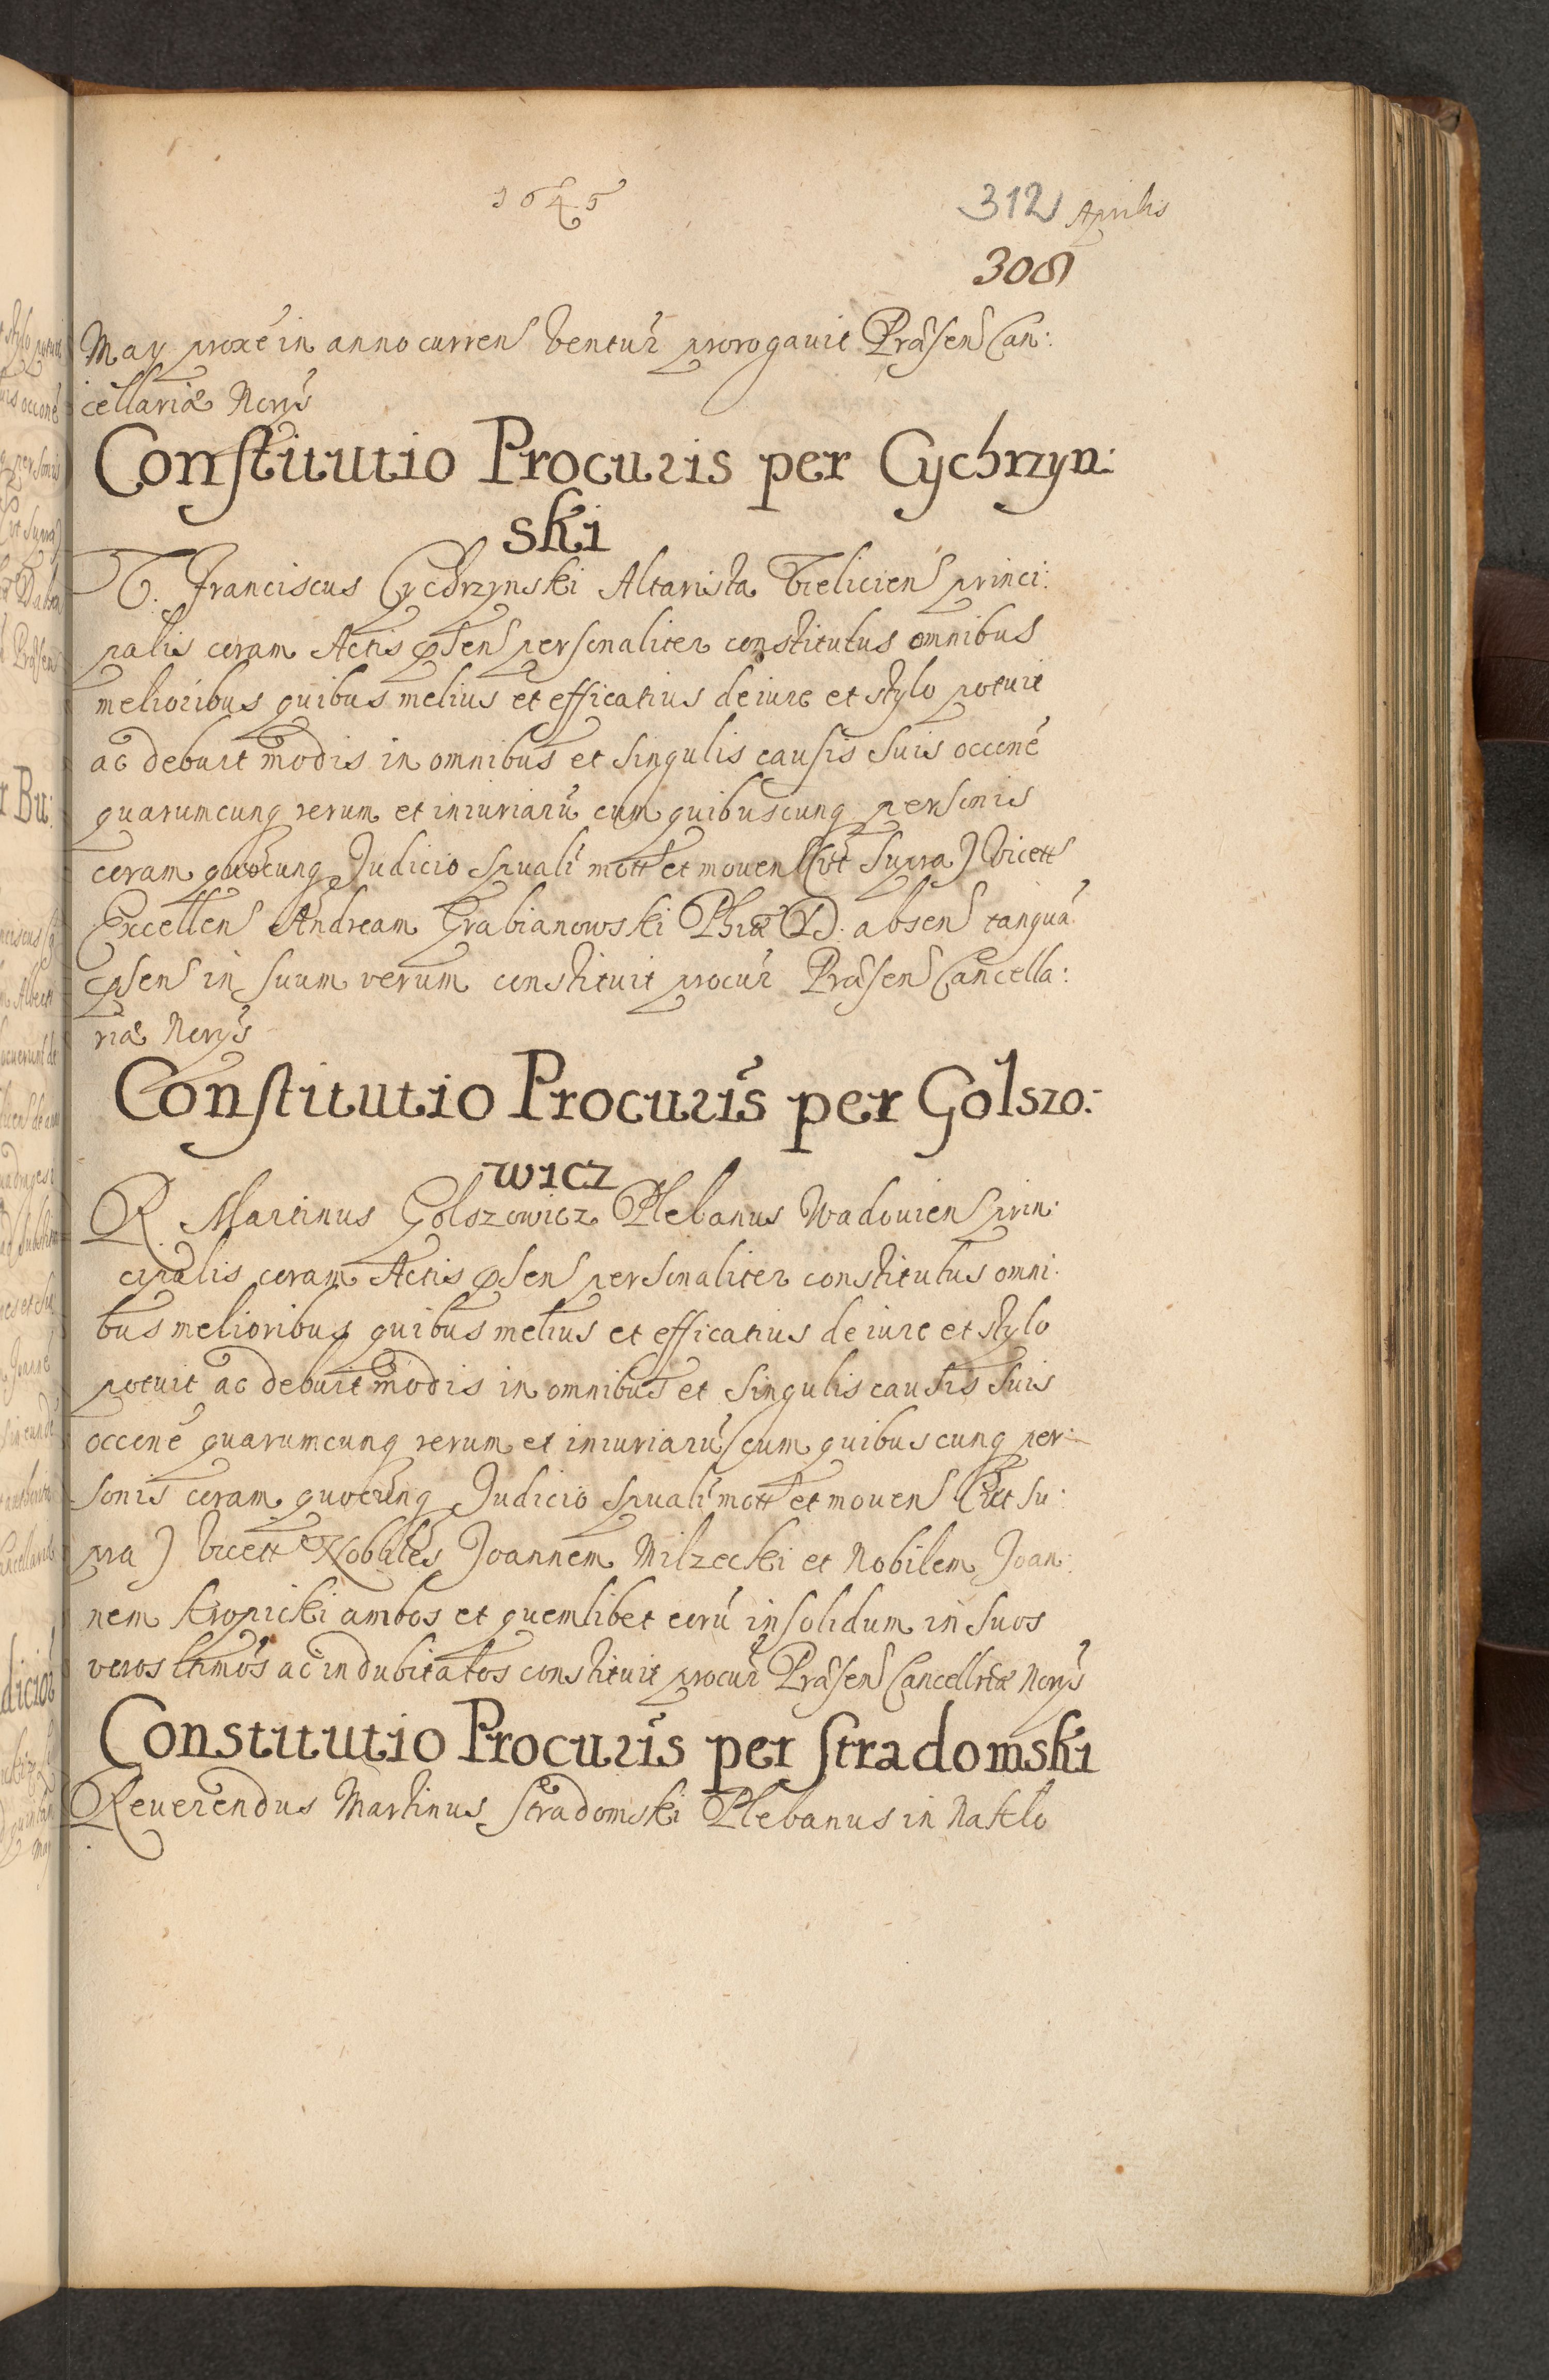 1645
312 Aprilis
308
May proxe in anno curren ventur prorogavit Præsen Can:
cellariæ Norys
Constitutio Procuris per Cychrzyn:
ski
V. Franciscus Cychrzynski Altarista Vielicien princi:
palis coram Actis psen personaliter constitutus omnibus
melioribus quibus melius et efficatius de iure et stylo potuit
ac debuit modis in omnibus et singulis causis suis occone
quarumcunq rerum et iniuriarū cum quibuscunq personis
coram quocunq Judicio spuali mott et mouen (vt supra) vicett
Excellen Andream Grabianowski Phiæ D. absen tanquā
psen in suum verum constituit procur Præsen Cancella:
riæ Norys
Constitutio Procuris per Golszo:
wicz
R. Martinus Golszowicz Plebanus Wadouien prin:
cipalis coram Actis psen personaliter constitutus omni:
bus melioribus quibus melius et efficatius de iure et stylo
potuit ac debuit modis in omnibus et singulis causis suis
occone quarumcunq rerum et iniuriarū cum quibuscunq per:
sonis coram quocunq Judicio spuali mott et mouen (vt su:
pra) vicett Nobiles Joannem Milzecki et Nobilem Joan:
nem Kropicki ambos et quemlibet eorū in solidum in suos
veros ltimos ac indubitatos constituit procur Præsen Cancellriæ Norys
Constitutio Procuris per Stradomski
Reuerendus Martinus Stradomski Plebanus in Nakło